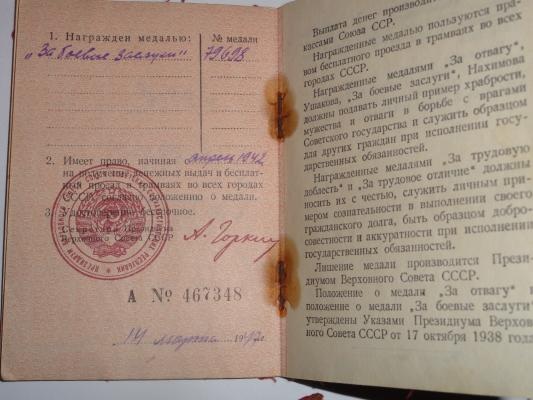 1. Награжден медалью:
№ медали
„За боевые заслуги"
79698
2. Имеет право, начиная с апреля 1942
на получение денежных выдач и бесплат-
ный проезд в трамваях во всех городах
СССР, согласно положению о медали.
3. Удостоверение бессрочное.
Секретарь Президиума
Верховного Совета СССР
А. Горкин
А № 467348
14 марта 1947г.
Выплата денег производи
кассами Союза ССР.
Награжденные медалью пользуются пра-
вом бесплатного проезда в трамваях во всех
городах СССР.
Награжденные медалями „За отвагу",
Ушакова, „За боевые заслуги", Нахимова
должны подавать личный пример храбрости,
мужества и отваги в борьбе с врагами
Советского государства и служить образцом
для других граждан при исполнении госу-
дарственных обязанностей.
Награжденные медалями „За трудовую
доблесть" и „За трудовое отличие" должны
носить их с честью, служить личным при-
мером сознательности в выполнении своего
гражданского долга, быть образцом добро-
совестности и аккуратности при исполнении
государственных обязанностей.
Лишение медали производится Прези-
диумом Верховного Совета СССР.
Положение о медали „За отвагу" и
положение о медали „За боевые заслуги"
утверждены Указами Президиума Верхов-
ного Совета СССР от 17 октября 1938 года